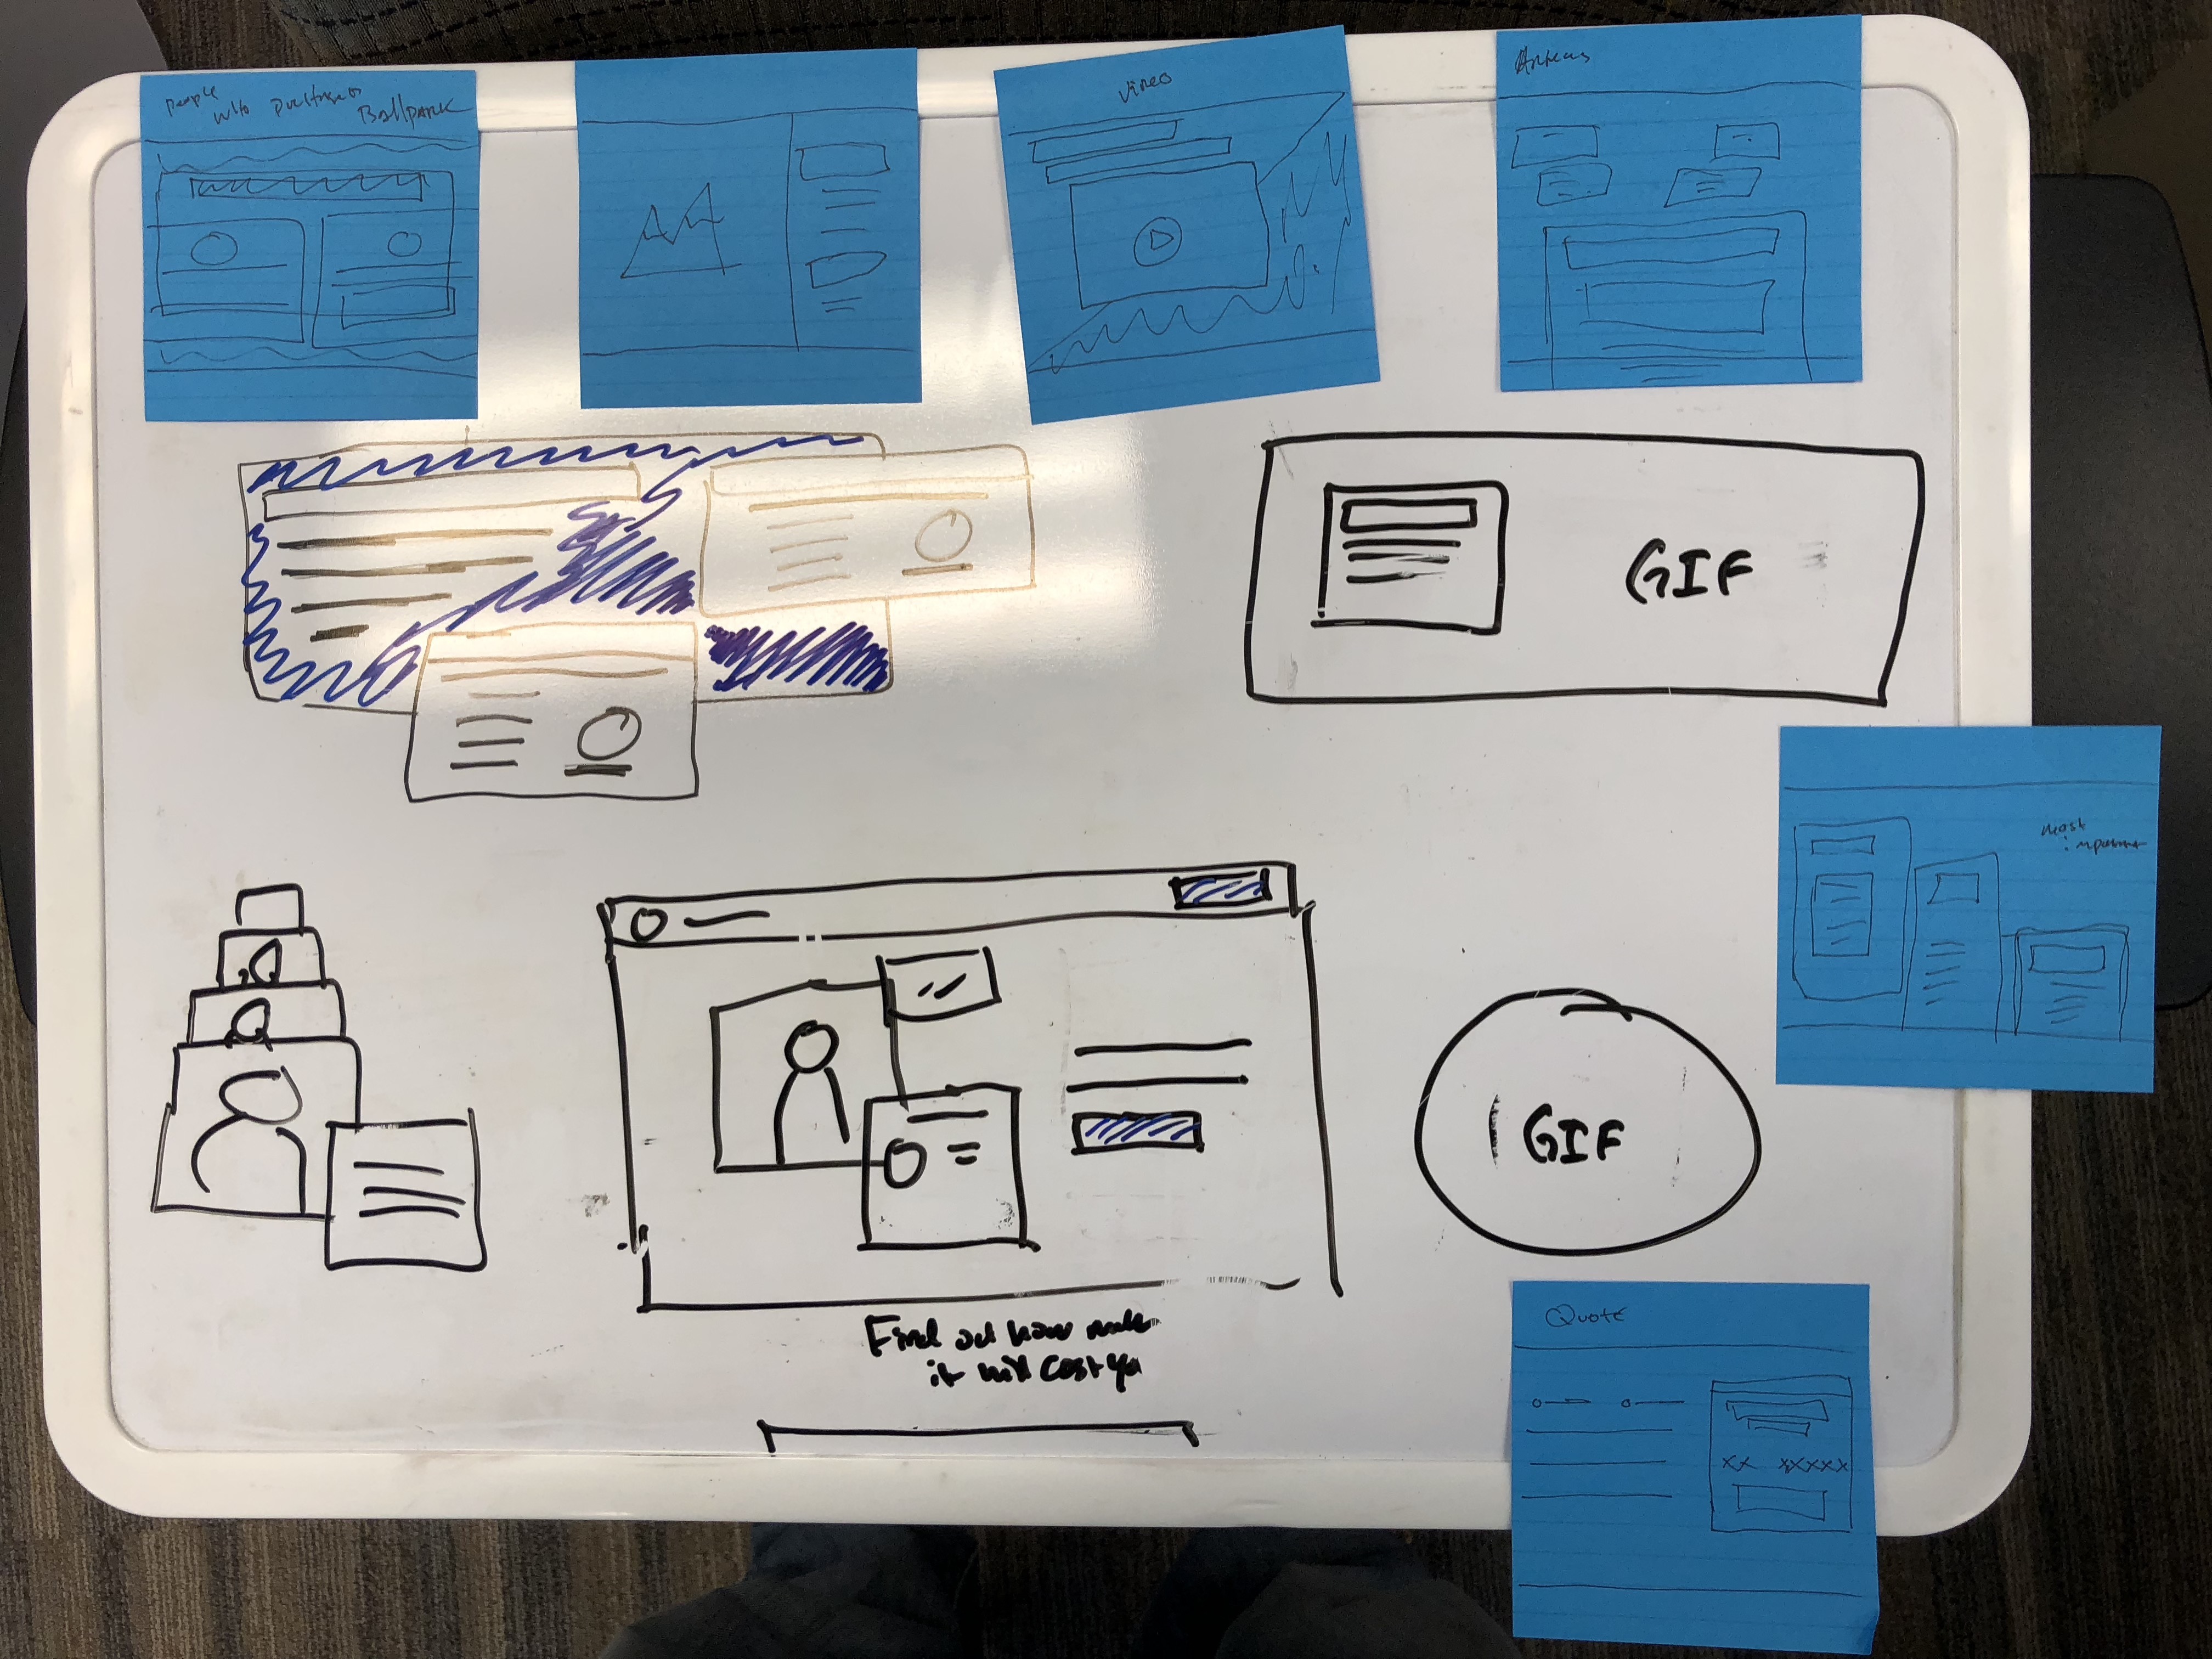 People
who purchased
Ballpark
Video
GIF
most
important
GIF
Find out how much
it will cost ya
Quote
xx xxxxx